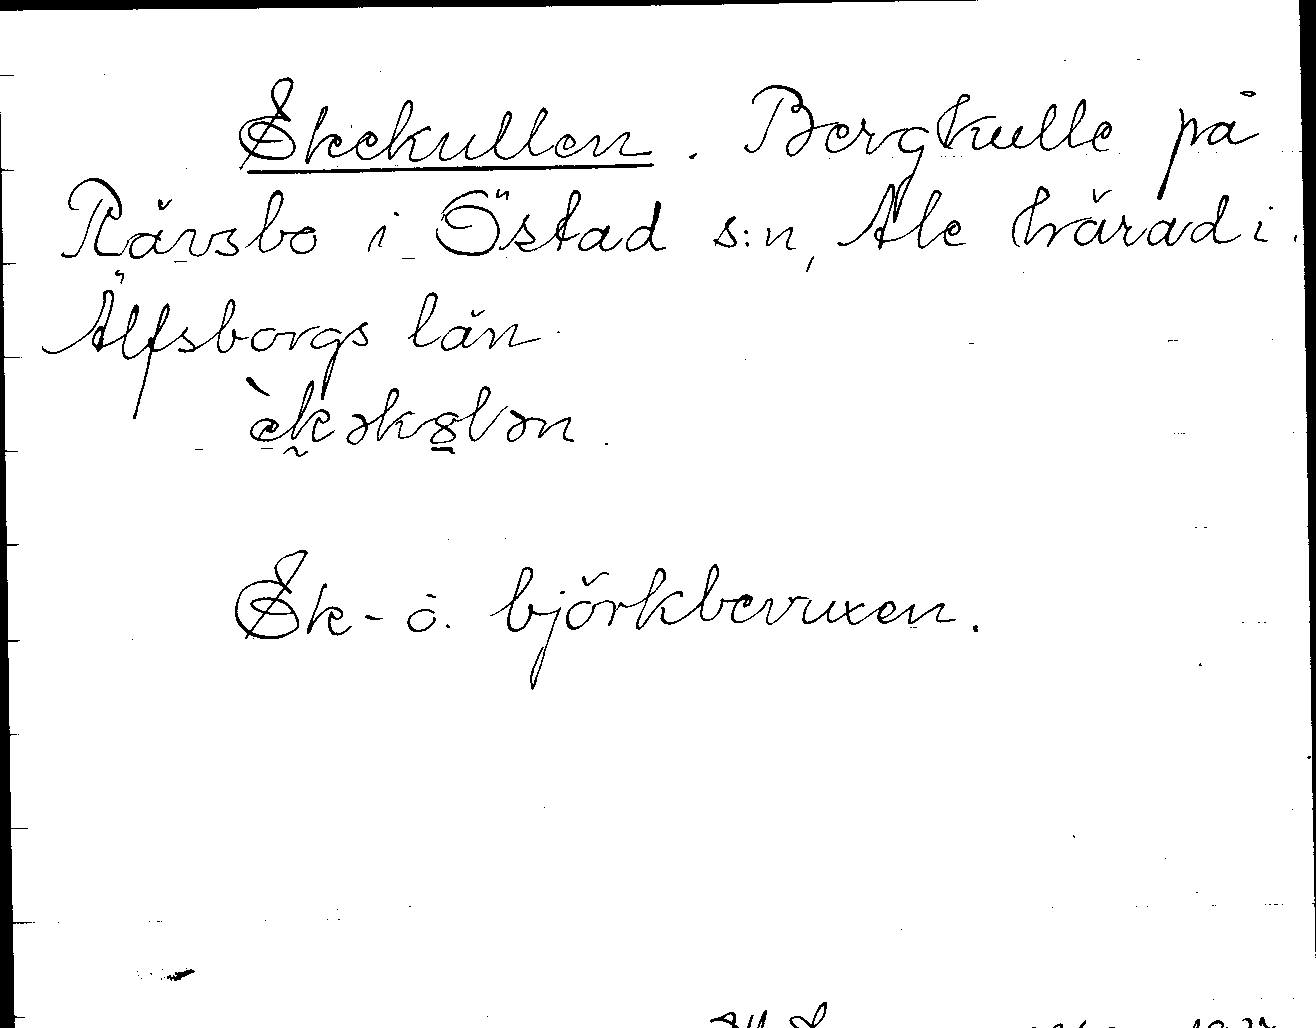 Ekekullen. Bergkulle på
Rävsbo i Östad s:n, Ale härad i
Älfsborgs län
èkəkȣlən.
Ek- o. björkbevuxen.